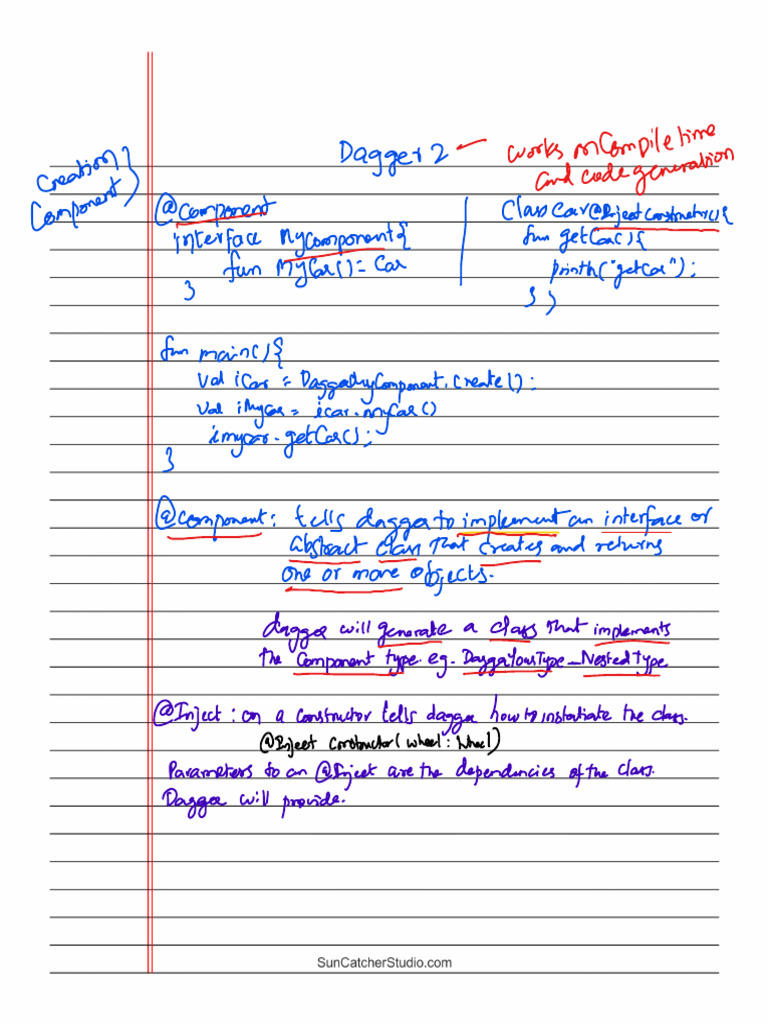 Dagger 2 - works on Compile time
and code generation
Creation
Component
@Component
interface MyComponent{
fun MyCar() = Car
}
Class Car @Inject Constructor(){
fun getCar(){
println("getCar");
} }
fun main(){
val iCar = DaggerMyComponent.create();
val iMycar = icar.myCar()
imycar.getCar();
}
@Component: tells dagger to implement an interface or
abstract class that creates and returns
one or more objects.
dagger will generate a class that implements
the component type. eg. DaggerYourType_NestedType
@Inject: on a constructor tells dagger how to instatiate the class.
@Inject constructor(wheel: Wheel)
Parameters to an @Inject are the dependencies of the class.
Dagger will provide.
SunCatcherStudio.com